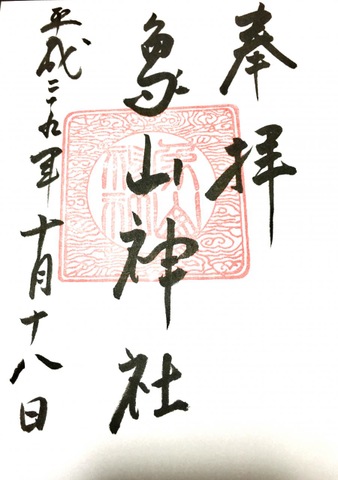 奉拝
象山神社
平成二十九年十月十八日